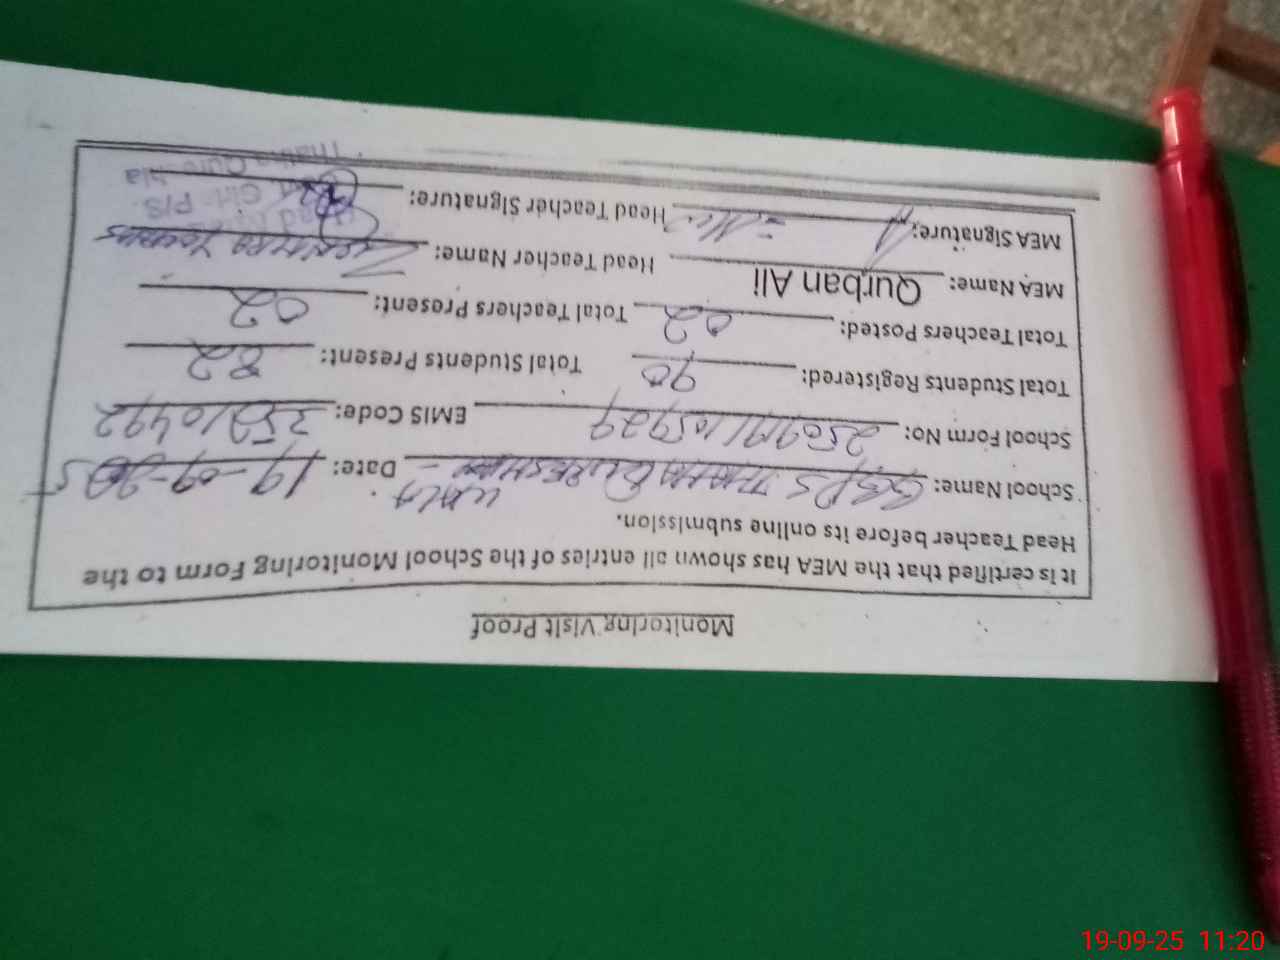 Monitoring Visit Proof
It is certified that the MEA has shown all entries of the School Monitoring Form to the
Head Teacher before its online submission.
School Name: GGPS THATHA QURESHIAN WALA Date: 19-09-2025
School Form No: EMIS Code:
Total Students Registered: 90 Total Students Present: 82
Total Teachers Posted: 02 Total Teachers Present: 02
MEA Name: Qurban Ali Head Teacher Name:
MEA Signature: Head Teacher Signature:
19-09-25 11:20